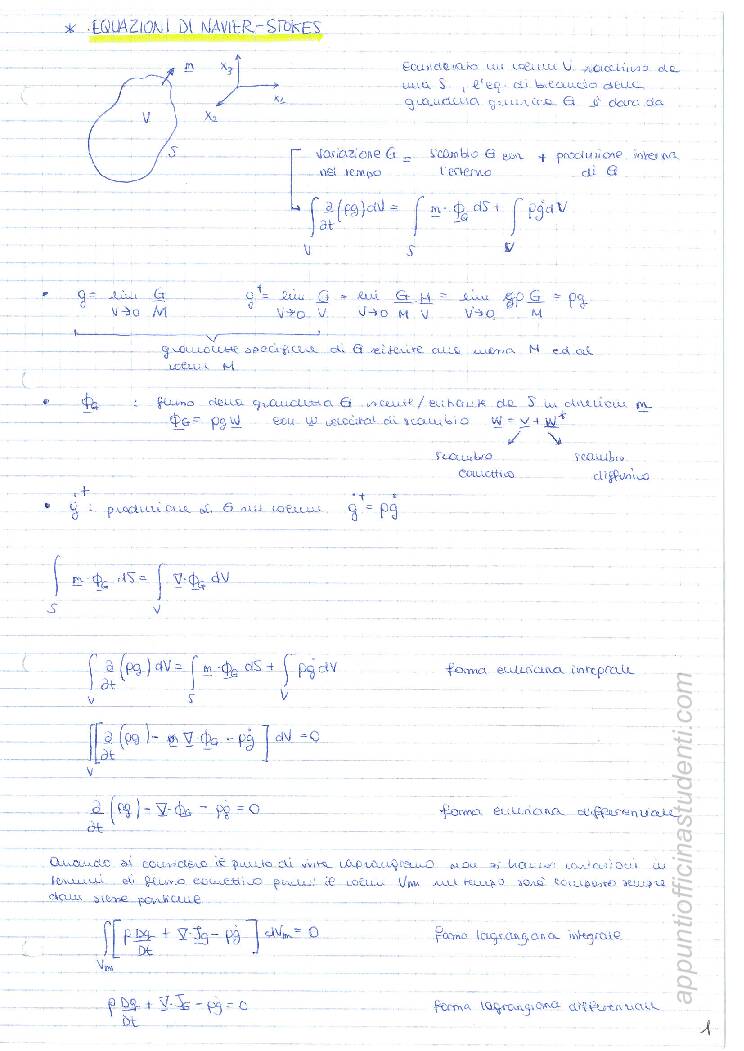 * EQUAZIONI DI NAVIER-STOKES
n x3 x1 x2 V S
Considerato un volume V racchiuso da
una S, l'eq. di bilancio della
grandezza generica G è data da
variazione G = scambio G con + produzione interna
nel tempo l'esterno di G
∫_V ∂/∂t (ρg) dV = ∫_S n·Φ_G dS + ∫_V ρġ dV
• g = lim_{V→0} G/M g⁺ = lim_{V→0} G/V = lim_{V→0} G/M M/V = lim_{V→0} ρ G/M = ρg
grandezze specifiche di G riferite alla massa M ed al
volume M.
• Φ_G : flusso della grandezza G uscente/entrante da S in direzione n
Φ_G = ρg W con W velocità di scambio W = v + W*
scambio scambio
convettivo diffusivo
• ġ⁺ : produzione di G nel volume ġ⁺ = ρġ
∫_S n·Φ_G dS = ∫_V ∇·Φ_G dV
∫_V ∂/∂t (ρg) dV = ∫_S n·Φ_G dS + ∫_V ρġ dV forma euleriana integrale
∫_V [∂/∂t (ρg) - ∇·Φ_G - ρġ] dV = 0
∂/∂t (ρg) - ∇·Φ_G - ρġ = 0 forma euleriana differenziale
Quando si considera il punto di vista lagrangiano non si hanno variazioni in
termini di flusso convettivo perché il volume Vm nel tempo sarà composto sempre
dalle stesse particelle.
∫_Vm [ρ Dg/Dt + ∇·J_G - ρġ] dVm = 0 forma lagrangiana integrale
ρ Dg/Dt + ∇·J_G - ρġ = 0 forma lagrangiana differenziale
1
appuntiofficinastudenti.com